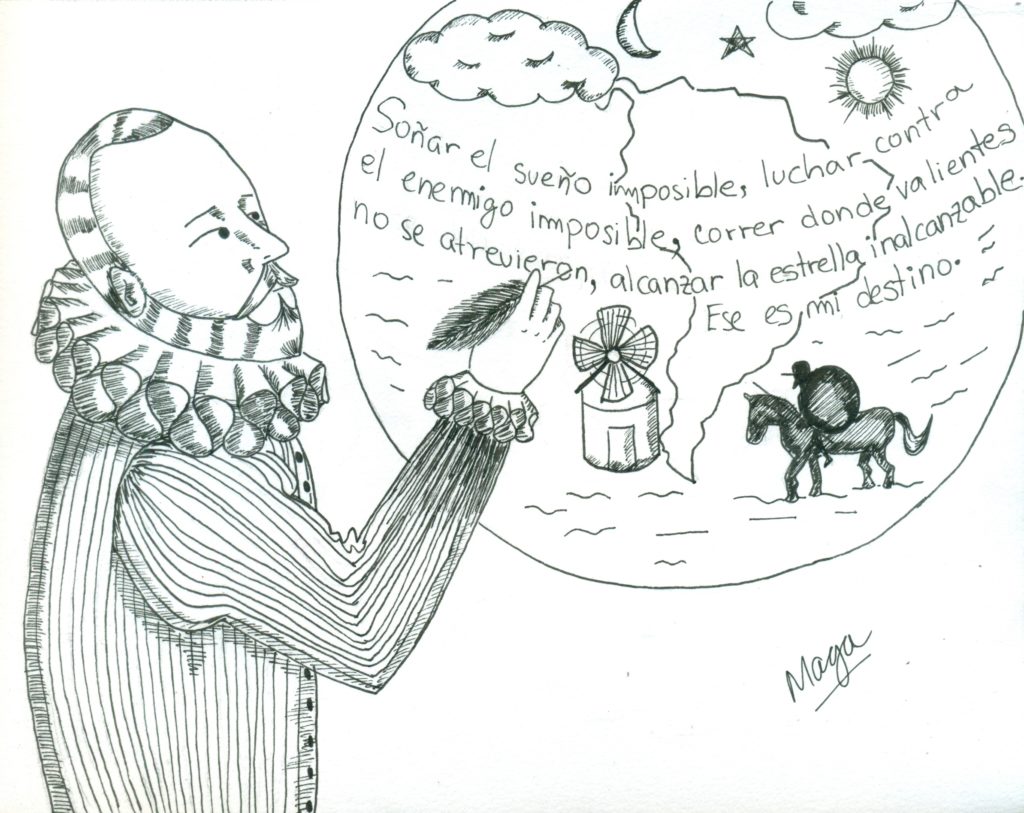 Soñar el sueño immposible, luchar contra
el enemigo immposible, correr donde valientes
no se atrevieron, alcanzar la estrella inalcanzable.
Ese es mi destino.
Maga